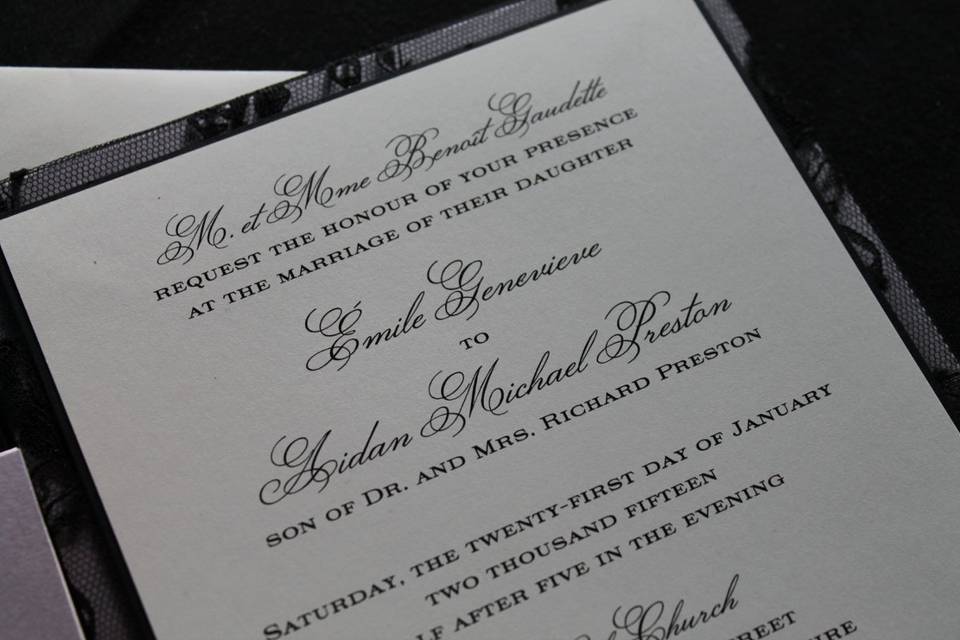 M. et Mme Benoît Gaudette
REQUEST THE HONOUR OF YOUR PRESENCE
AT THE MARRIAGE OF THEIR DAUGHTER
Émile Genevieve
TO
Aidan Michael Preston
SON OF DR. AND MRS. RICHARD PRESTON
SATURDAY, THE TWENTY-FIRST DAY OF JANUARY
TWO THOUSAND FIFTEEN
AFTER FIVE IN THE EVENING
Church